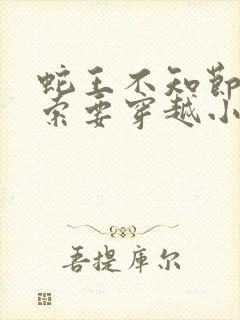 蛇王不知節
索要穿越小
吾提库尔